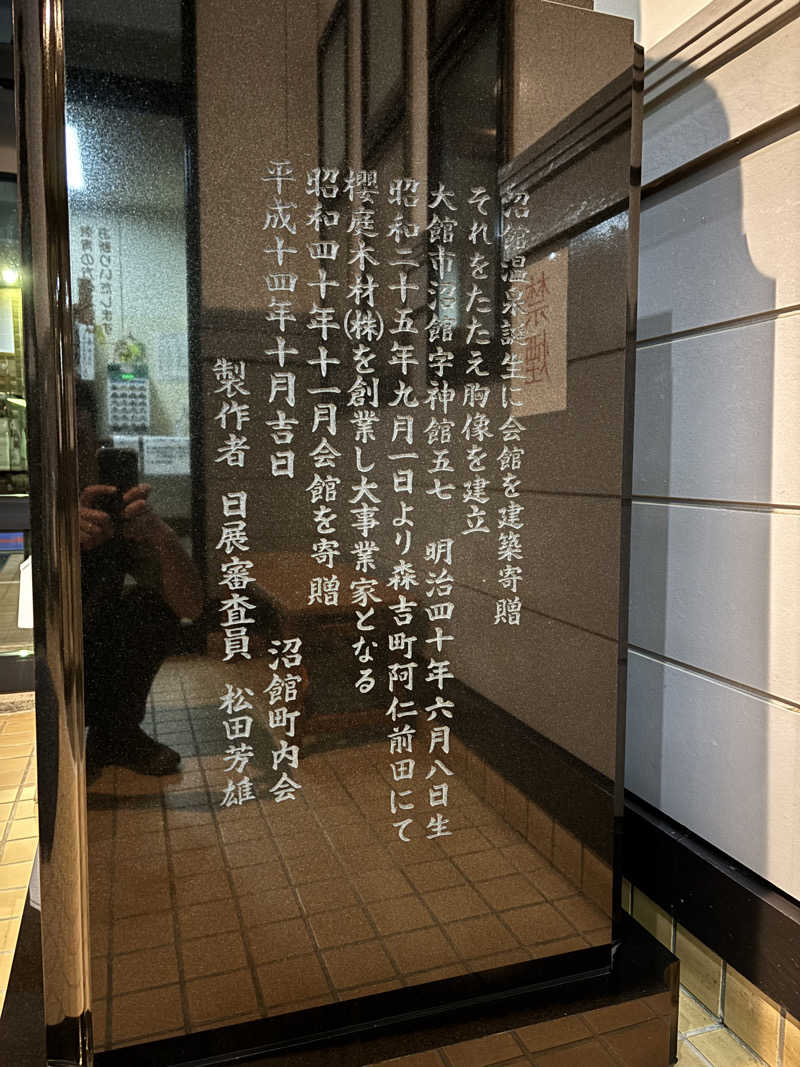 沼館温泉誕生に会館を建築寄贈
それをたたえ胸像を建立
大館市沼館字神館五七　明治四十年六月八日生
昭和二十五年九月一日より森吉町阿仁前田にて
櫻庭木材(株)を創業し大事業家となる
昭和四十年十一月会館を寄贈
平成十四年十月吉日
沼館町内会
製作者　日展審査員　松田芳雄
お断りいたします